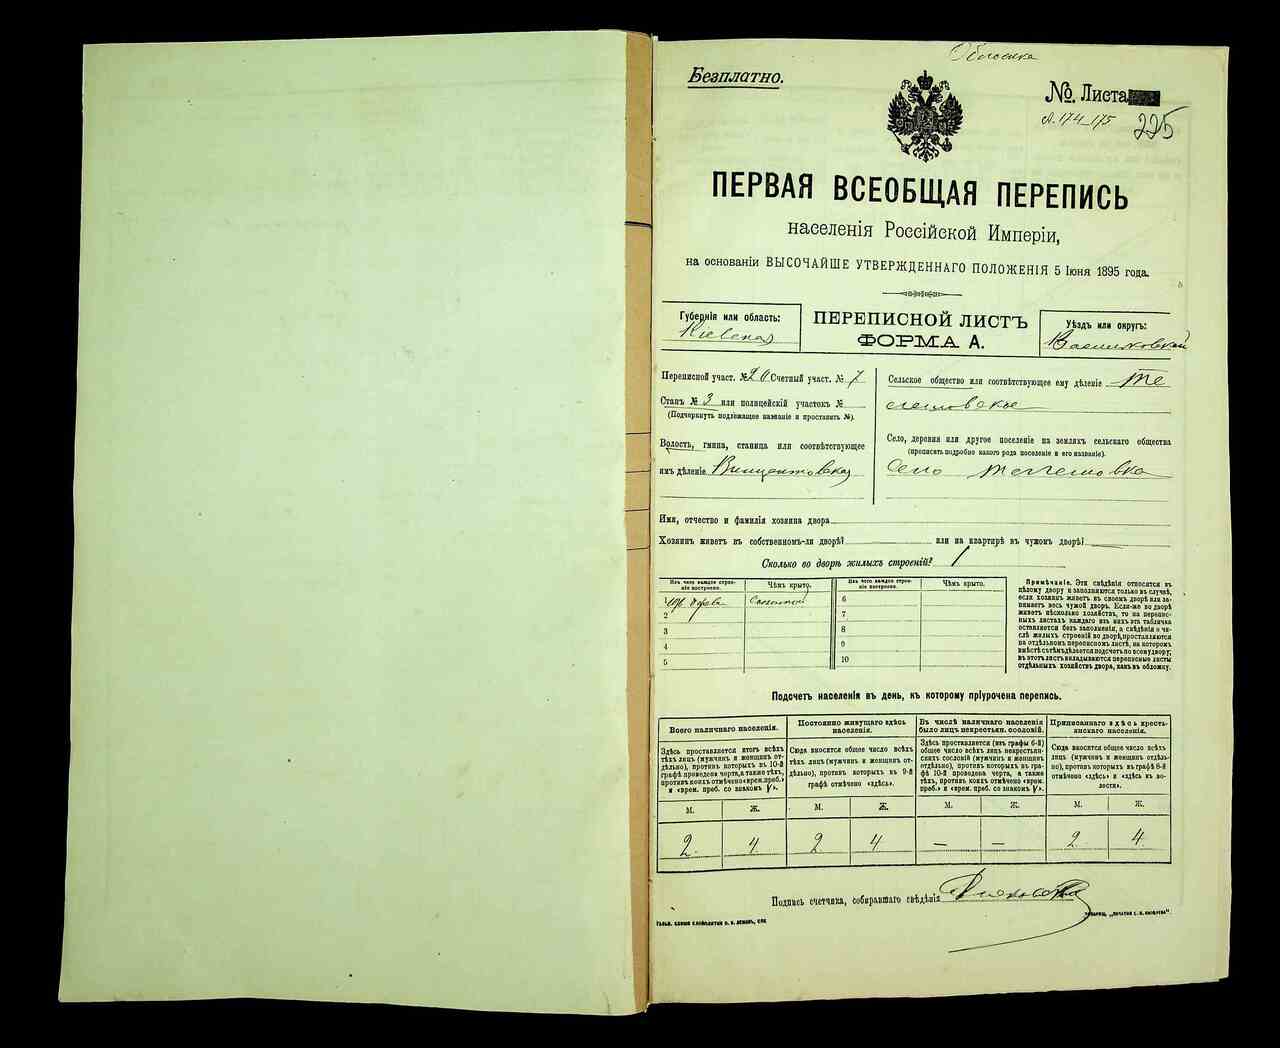 Обложка
Безплатно.
№ Листа
л. 174-175
225
ПЕРВАЯ ВСЕОБЩАЯ ПЕРЕПИСЬ
населенія Россійской Имперіи,
на основаніи ВЫСОЧАЙШЕ УТВЕРЖДЕННАГО ПОЛОЖЕНІЯ 5 Іюня 1895 года.
Губернія или область:
Кіевская
ПЕРЕПИСНОЙ ЛИСТЪ
ФОРМА А.
Уѣздъ или округъ:
Васильковскій
Переписной участ. № 20 Счетный участ. № 7
Станъ № 3 или полицейскій участокъ №
(Подчеркнуть подлежащее названіе и проставить №).
Волость, гмина, станица или соотвѣтствующее
имъ дѣленіе Винцентовская
Сельское общество или соотвѣтствующее ему дѣленіе Те
лешовское
Село, деревня или другое поселеніе на земляхъ сельскаго общества
(прописать подробно какого рода поселеніе и его названіе).
Село Телешовка
Имя, отчество и фамилія хозяина двора
Хозяинъ живетъ въ собственномъ-ли дворѣ? или на квартирѣ въ чужомъ дворѣ?
Сколько во дворѣ жилыхъ строеній? 1
Изъ чего каждое строе-
ніе построено.
Чѣмъ крыто.
Изъ чего каждое строе-
ніе построено.
Чѣмъ крыто.
дерева Соломой 6
2 7
3 8
4 9
5 10
Примѣчаніе. Эти свѣдѣнія относятся къ
цѣлому двору и заполняются только въ случаѣ,
если хозяинъ живетъ въ своемъ дворѣ или за-
нимаетъ весь чужой дворъ. Если-же во дворѣ
живетъ нѣсколько хозяйствъ, то на перепис-
ныхъ листахъ каждаго изъ нихъ эта табличка
оставляется безъ заполненія, а свѣдѣнія о чи-
слѣ жилыхъ строеній во дворѣ, проставляются
на отдѣльномъ переписномъ листѣ, на которомъ
вмѣстѣ съ тѣмъ дѣлается подсчетъ по всему двору;
въ этотъ листъ вкладываются переписные листы
отдѣльныхъ хозяйствъ двора, какъ въ обложку.
Подсчетъ населенія въ день, къ которому пріурочена перепись.
Всего наличнаго населенія.
Здѣсь проставляется итогъ всѣхъ
тѣхъ лицъ (мужчинъ и женщинъ от-
дѣльно), противъ которыхъ въ 10-й
графѣ проведена черта, а также тѣхъ,
противъ коихъ отмѣчено «врем. преб.»
и «врем. преб. со знакомъ V».
Постоянно живущаго здѣсь
населенія.
Сюда вносится общее число всѣхъ
тѣхъ лицъ (мужчинъ и женщинъ от-
дѣльно), противъ которыхъ въ 9-й
графѣ отмѣчено «здѣсь».
Въ числѣ наличнаго населенія
было лицъ некрестьян. сословій.
Здѣсь проставляется (изъ графы 6-й)
общее число всѣхъ лицъ некрестьян-
скихъ сословій (мужчинъ и женщинъ
отдѣльно), противъ которыхъ въ гра-
фѣ 10-й проведена черта, а также
тѣхъ, противъ коихъ отмѣчено «врем.
преб.» и «врем. преб. со знакомъ V».
Приписаннаго здѣсь кресть-
янскаго населенія.
Сюда вносится общее число всѣхъ
лицъ (мужчинъ и женщинъ отдѣль-
но), противъ которыхъ въ графѣ 8-й
отмѣчено «здѣсь» и «здѣсь въ во-
лости».
М. Ж. М. Ж. М. Ж. М. Ж.
2 4 2 4 — — 2 4
Подпись счетчика, собиравшаго свѣдѣнія